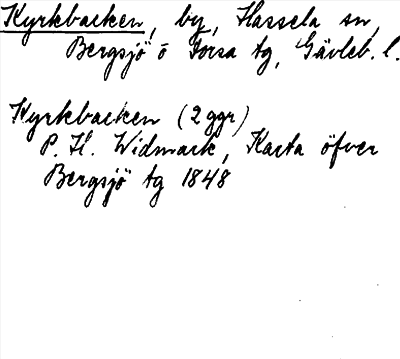 Kyrkbacken, by, Hassela sn,
Bergsjö o Forsa tg, Gävleb. l.
Kyrkbacken (2 ggr)
P. H. Widmark, Karta öfver
Bergsjö tg 1848